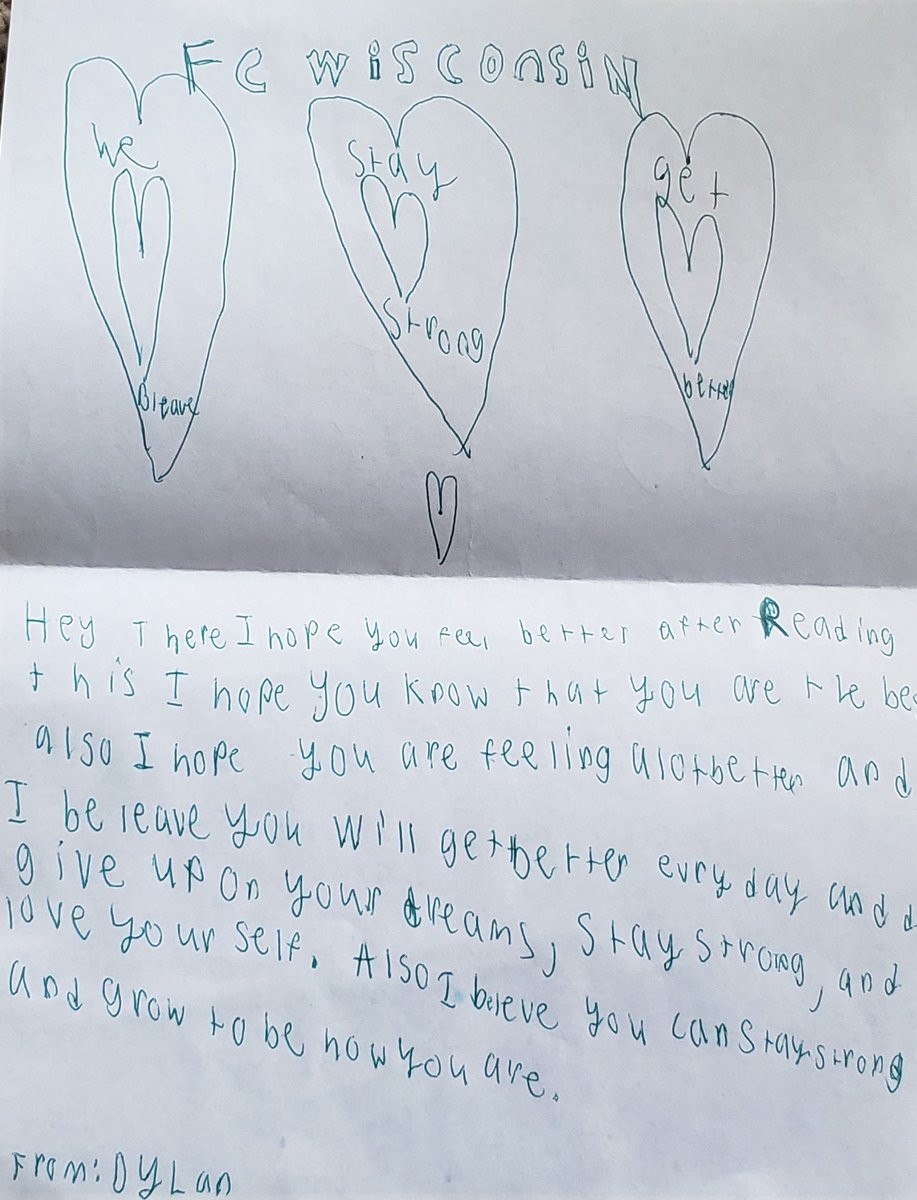 Fc wisconsin
We
Bleave
Stay
Strong
get
better
Hey There I hope you feel better after Reading
this I hope you know that you are the bes
also I hope you are feeling alot better and
I beleave you will get better evry day and d
give up on your dreams, Stay strong, and
love your self. Also I beleve you can Stay strong
and grow to be how you are.
From: DYLan